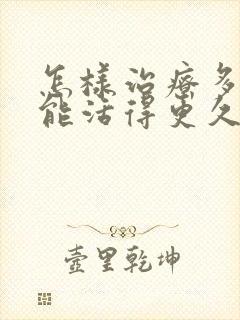 怎样治疗多
能活得更久
壶里乾坤